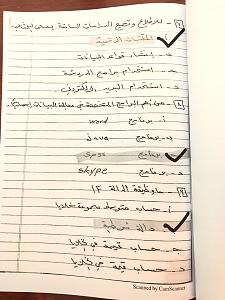 ٧) للاطلاع وتجميع الدراسات السابقة يمكن
أ- المكتبات الرقمية
ب- إنشاء قواعد البيانات
ج- استخدام برامج الدردشة
د- استخدام البريد الإلكتروني
٨) من أهم البرامج المتخصصة في معالجة البيانات إحصائياً
أ- برنامج word
ب- برنامج Java
برنامج spss
برنامج skype
٩) ما وظيفة الدالة IF
أ- حساب متوسط مجموعة خلايا
دالة شرطية
ج- حساب قيمة في خلايا
د- حساب قيمة في خلايا
Scanned by CamScanner